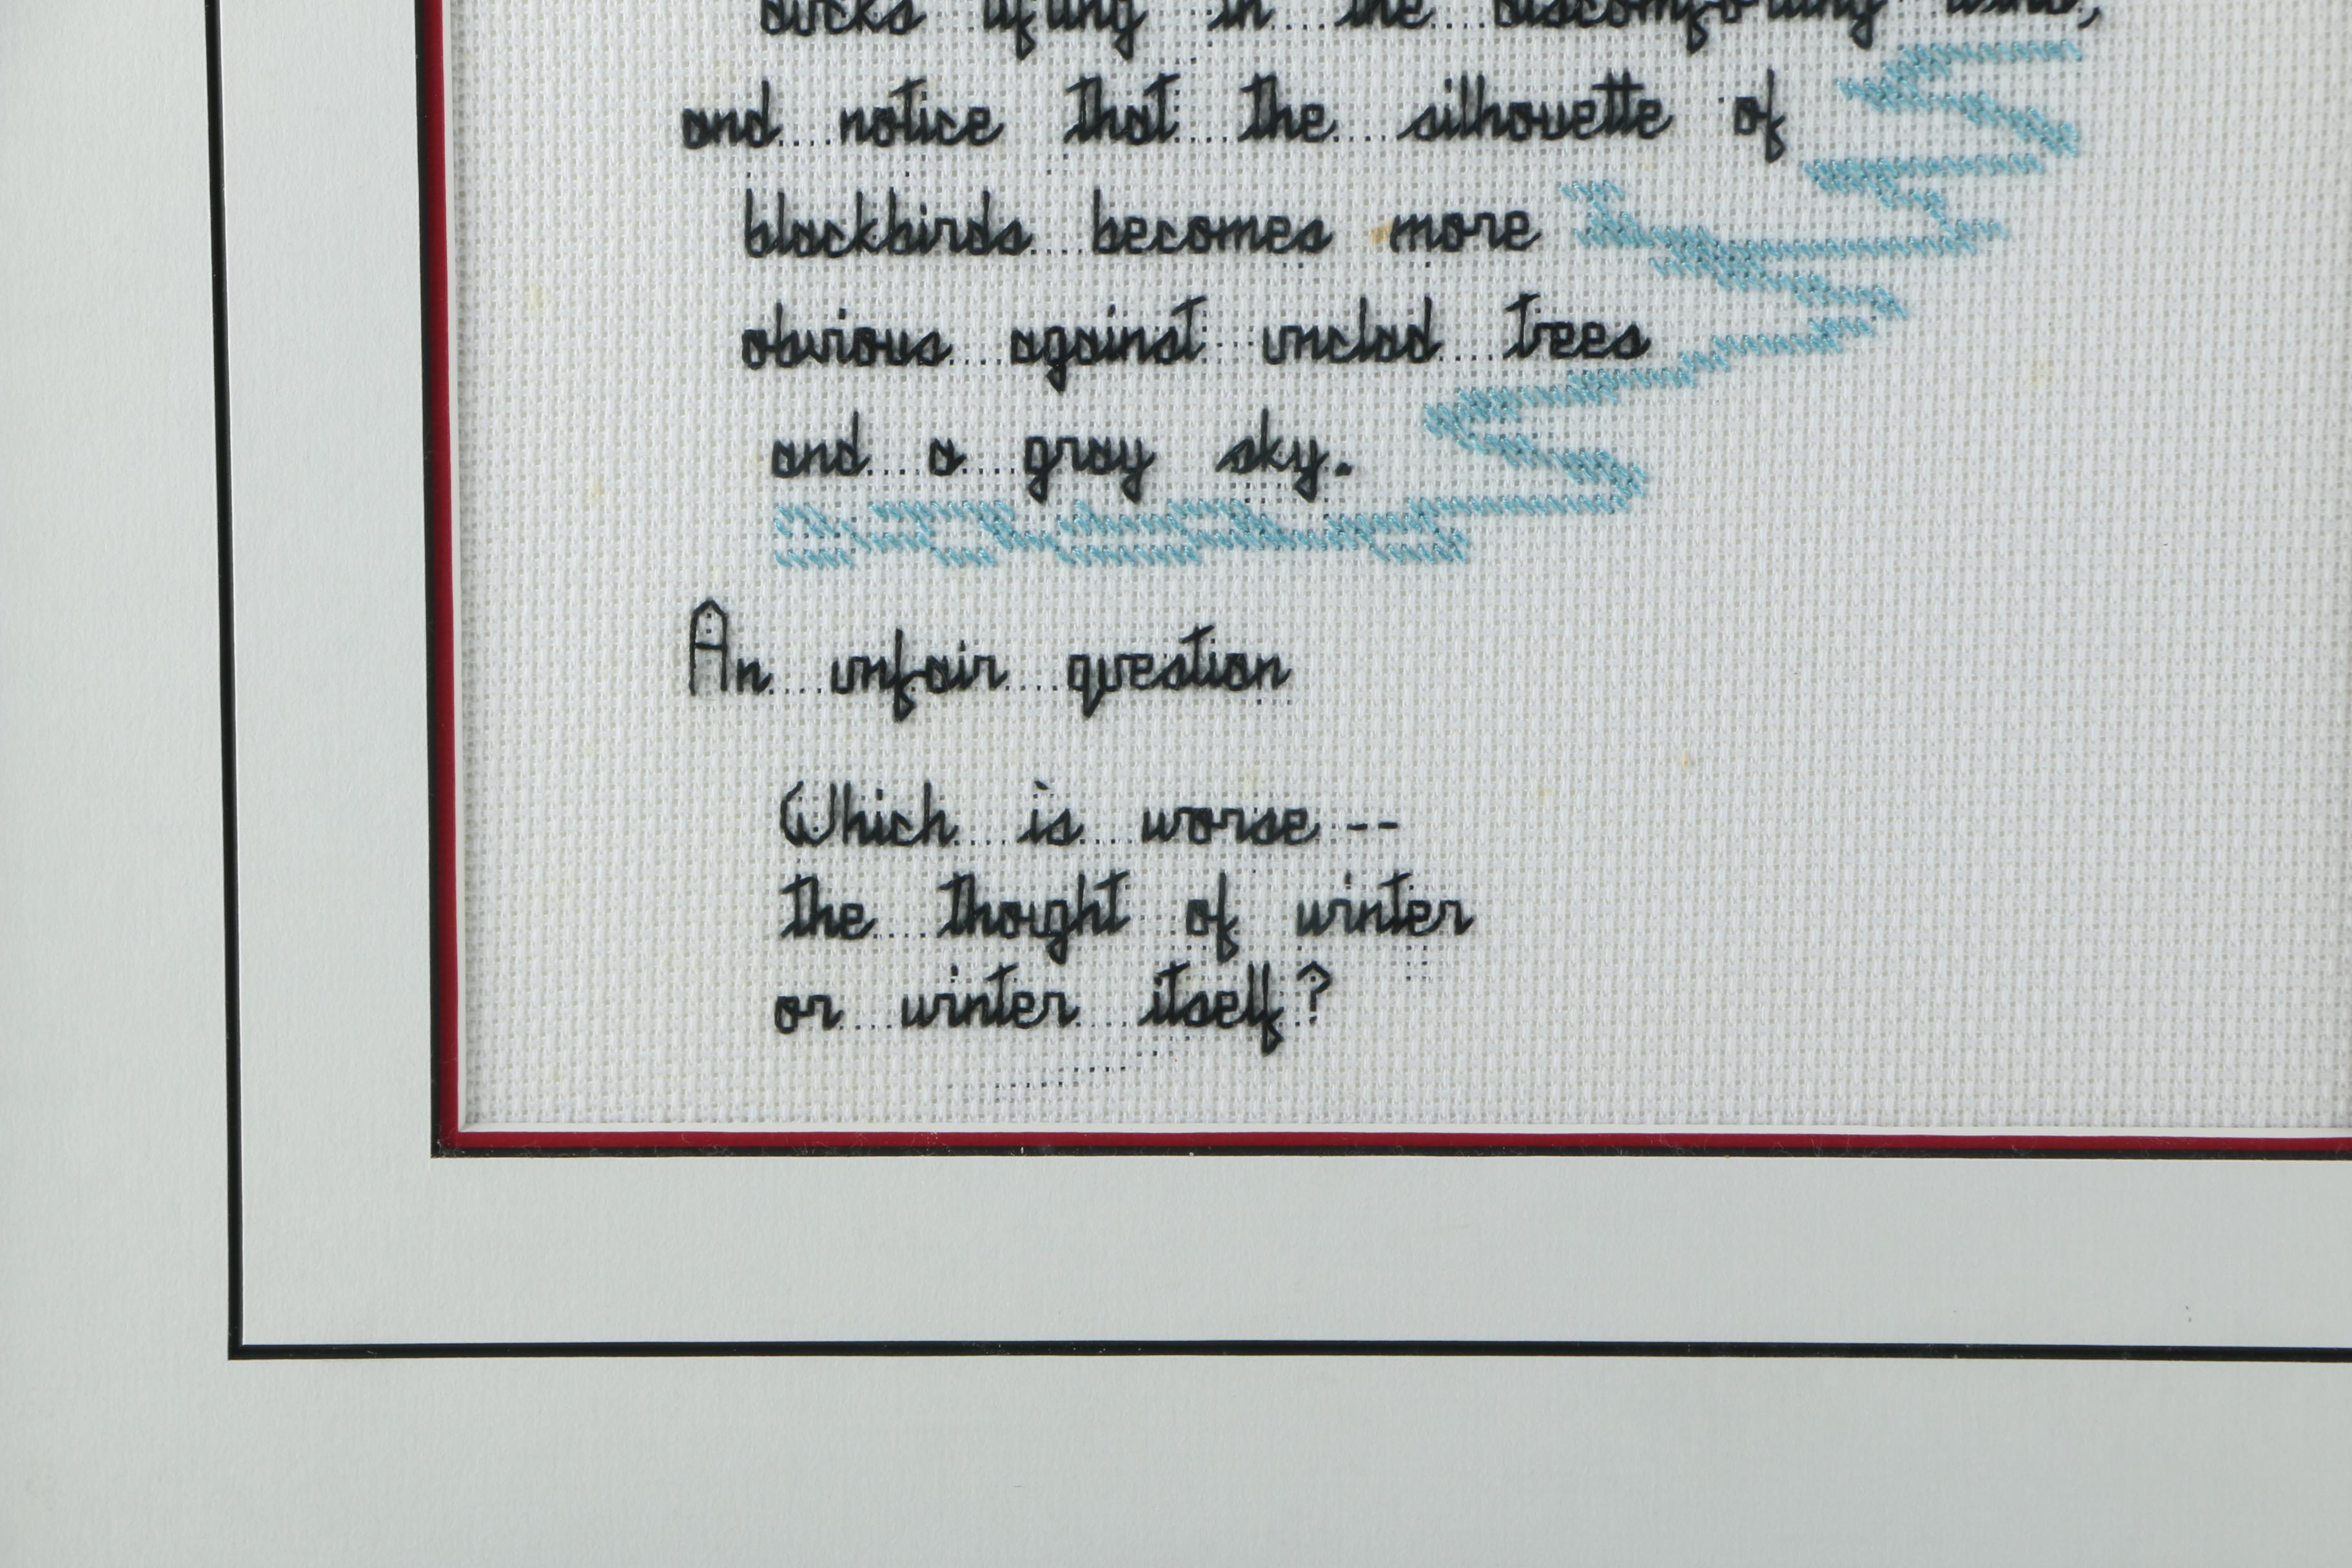 ducks lifting in the discomforting wind,
and notice that the silhouette of
blackbirds becomes more
obvious against unclad trees
and a gray sky.
An unfair question
Which is worse --
the thought of winter
or winter itself?